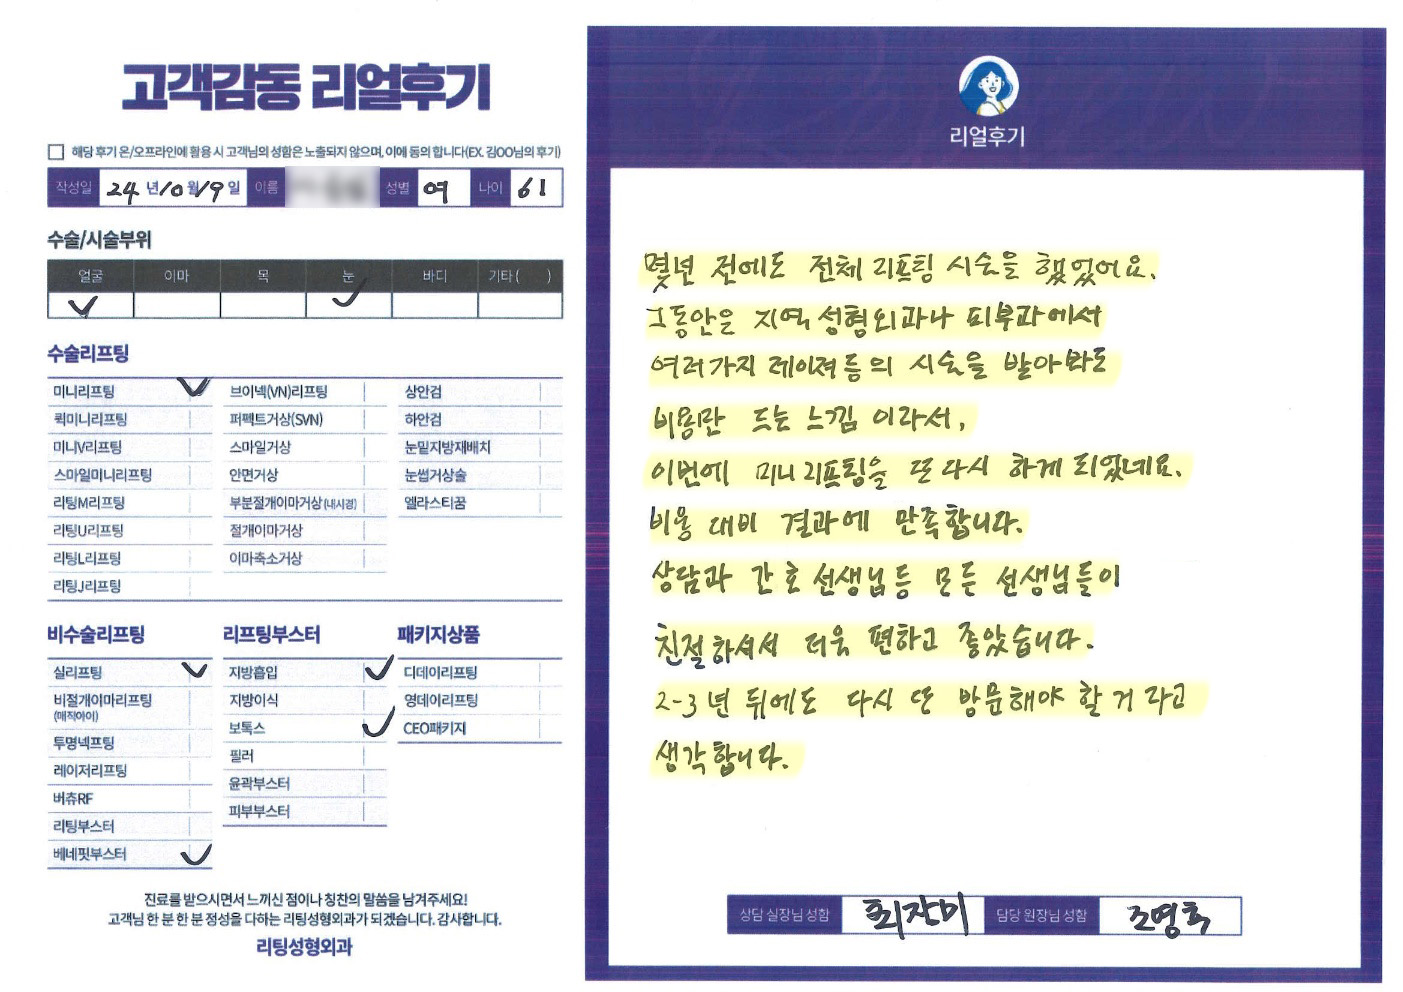 고객감동 리얼후기
해당 후기 온/오프라인에 활용 시 고객님의 성함은 노출되지 않으며, 이에 동의 합니다(EX. 김OO님의 후기)
작성일 24 년 10 월 19 일 이름 성별 여 나이 61
수술/시술부위
얼굴 이마 목 눈 바디 기타 ( )
수술리프팅
미니리프팅 브이넥(VN)리프팅 상안검
퀵미니리프팅 퍼펙트거상(SVN) 하안검
미니V리프팅 스마일거상 눈밑지방재배치
스마일미니리프팅 안면거상 눈썹거상술
리팅M리프팅 부분절개이마거상(내시경) 엘라스티꿈
리팅U리프팅 절개이마거상
리팅L리프팅 이마축소거상
리팅J리프팅
비수술리프팅 리프팅부스터 패키지상품
실리프팅 지방흡입 디데이리프팅
비절개이마리프팅 지방이식 영데이리프팅
(매직아이) 보톡스 CEO패키지
투명넥프팅 필러
레이저리프팅 윤곽부스터
버츄RF 피부부스터
리팅부스터
베네핏부스터
진료를 받으시면서 느끼신 점이나 칭찬의 말씀을 남겨주세요!
고객님 한 분 한 분 정성을 다하는 리팅성형외과가 되겠습니다. 감사합니다.
리팅성형외과
리얼후기
몇년 전에도 전체 리프팅 시술을 했었어요.
그동안은 지역 성형외과나 피부과에서
여러가지 레이져등의 시술을 받아봐도
비용만 드는 느낌 이라서,
이번에 미니리프팅을 또 다시 하게 되었네요.
비용 대비 결과에 만족합니다.
상담과 간호 선생님등 모든 선생님들이
친절하셔서 더욱 편하고 좋았습니다.
2-3년 뒤에도 다시 또 방문해야 할 거 라고
생각합니다.
상담 실장님 성함 최장미 담당 원장님 성함 조명훈